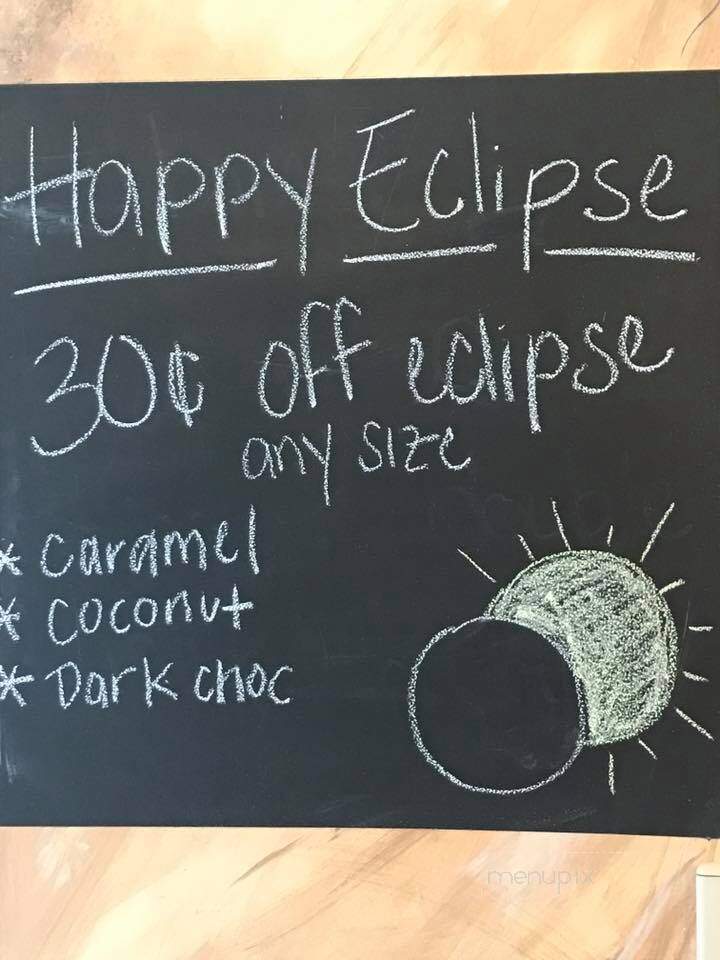 Happy Eclipse
30¢ off eclipse
any size
* caramel
* coconut
* Dark choc
menupix